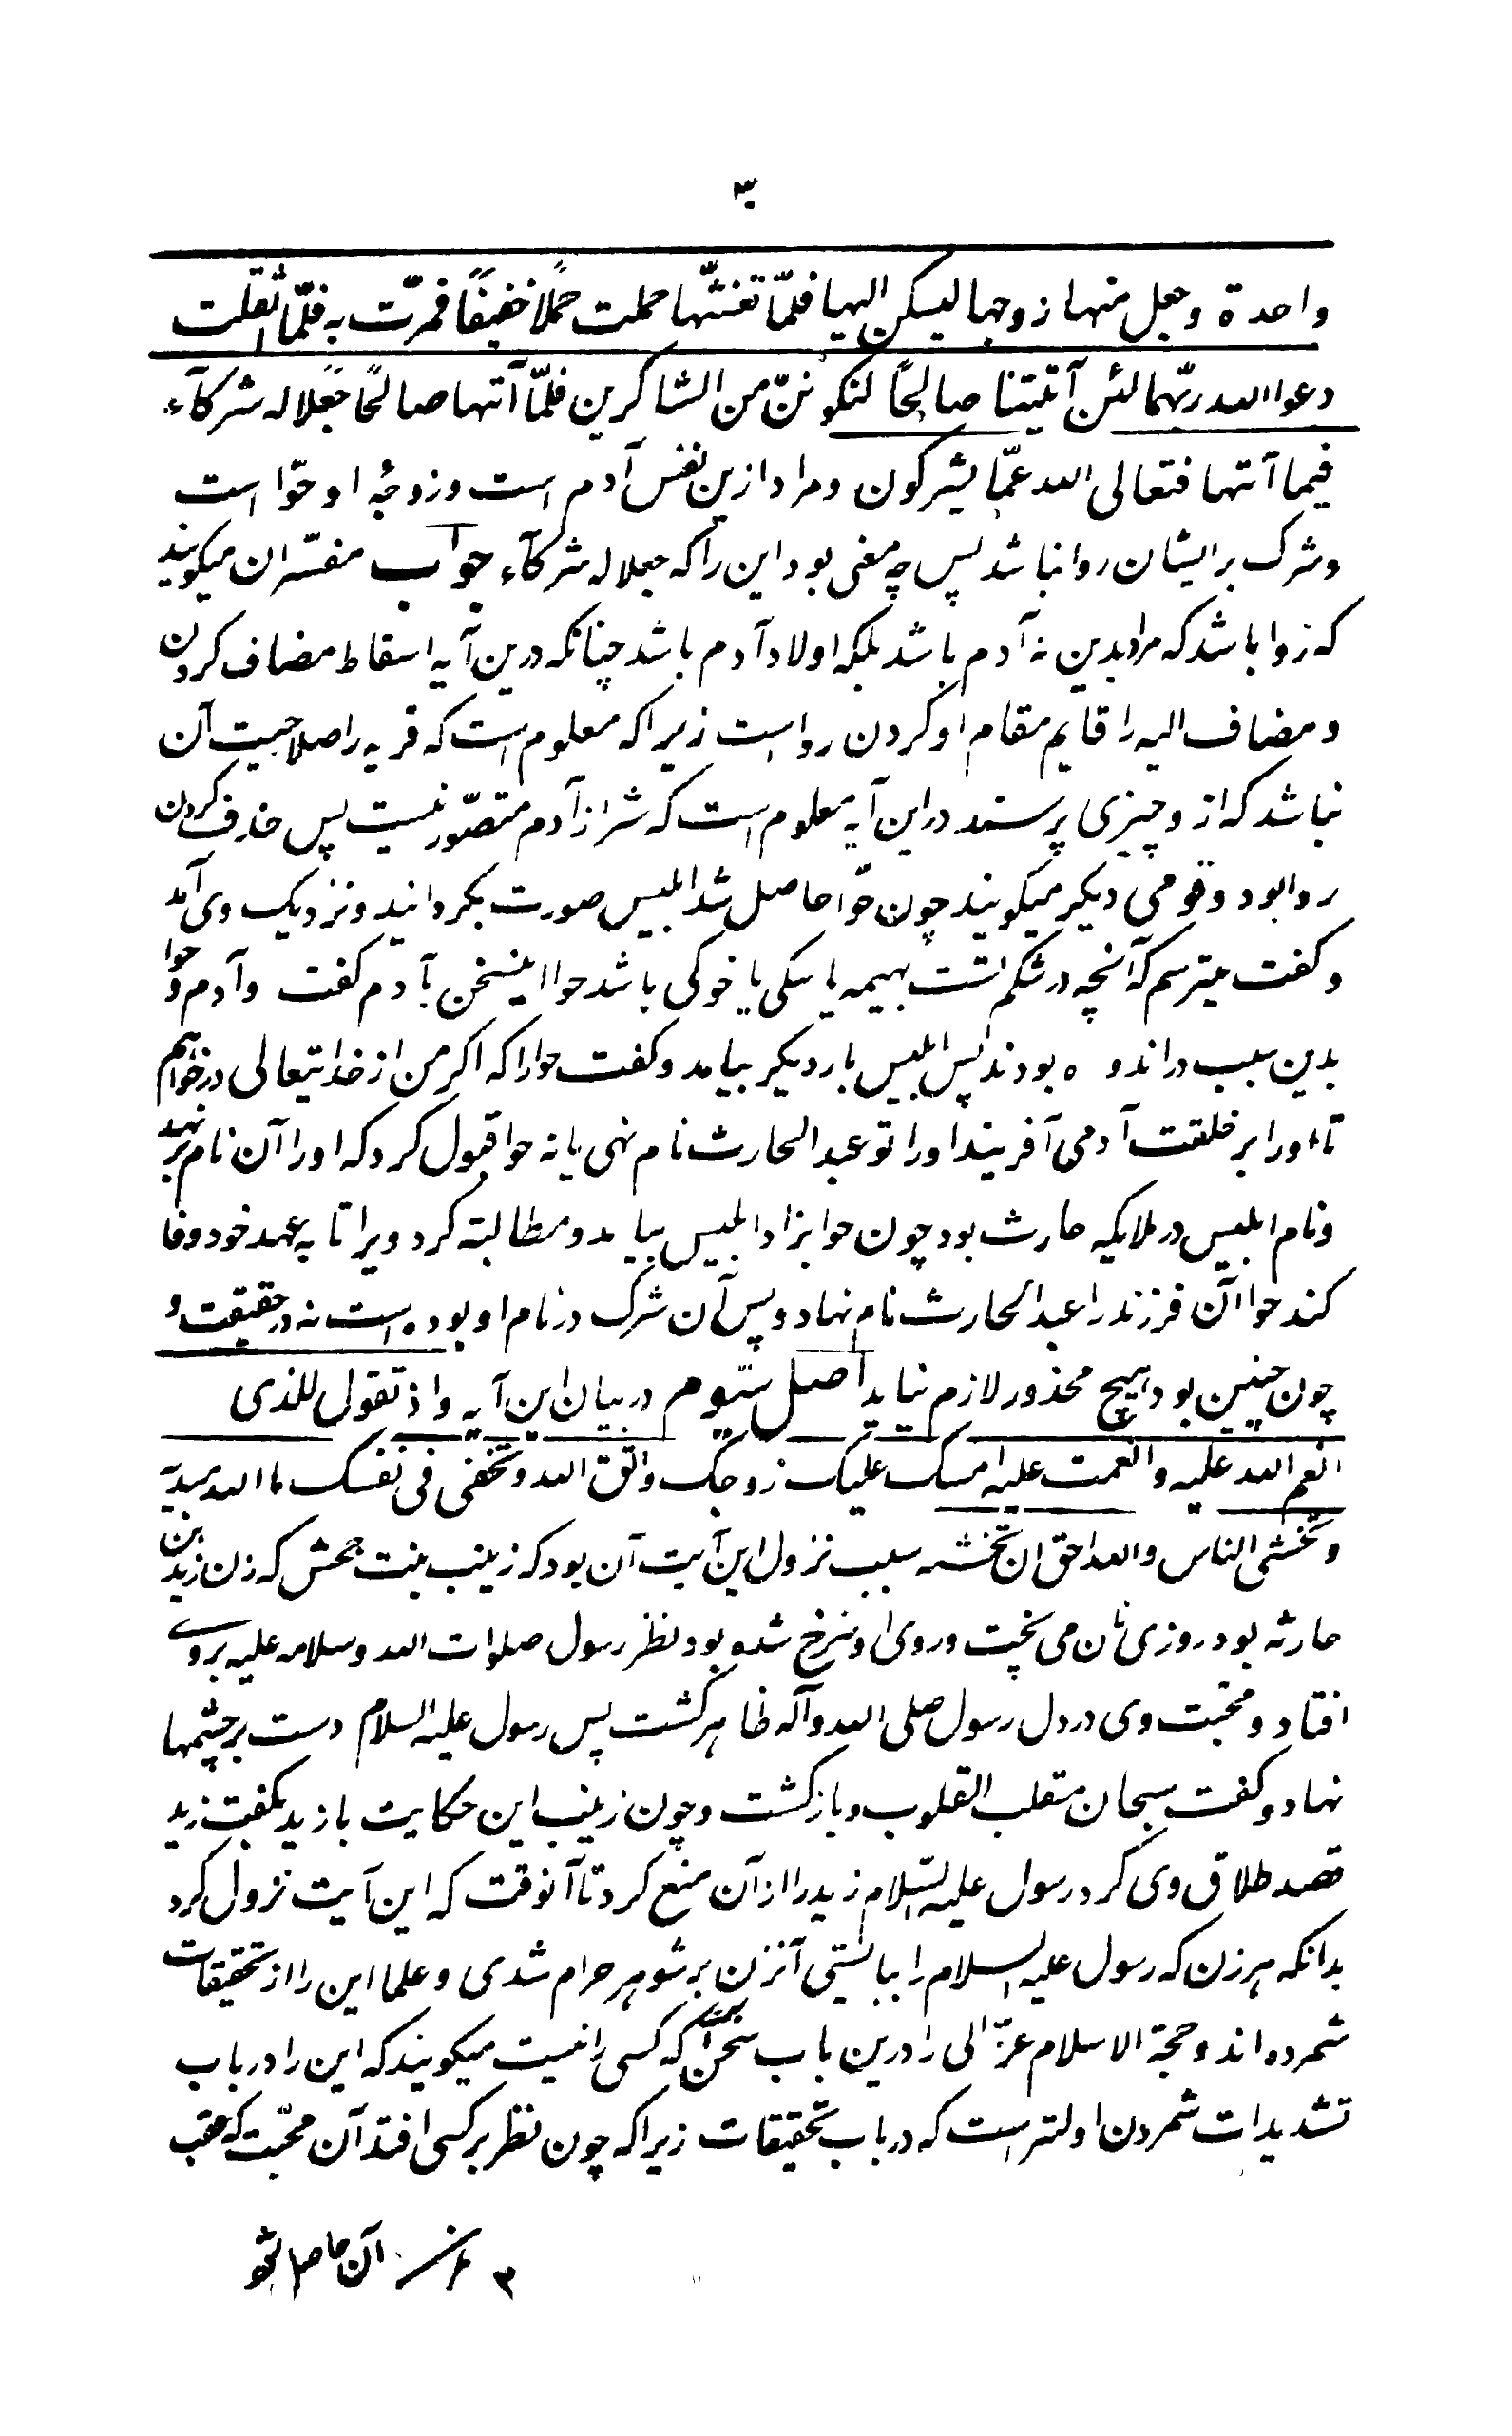 ۳
واحدة وجعل منها زوجها ليسكن اليها فلمّا تغشّها حملت حملًا خفيفًا فمرّت به فلمّا اثقلت
دعوا الله ربّهما لئن آتيتنا صالحًا لنكوننّ من الشاكرين فلمّا آتهما صالحًا جعلا له شركآء
فيما آتهما فتعالى الله عمّا يشركون ومراد ازين نفس آدم است وزوجهٔ او حوّا است
وشرک برایشان روا نباشد پس چه معنی بود این را که جعلا له شرکآء جواب مفسّران میکویند
که روا باشد که مراد بدین نه آدم باشد بلکه اولاد آدم باشد چنانکه درین آیه اسقاط مضاف کردن
ومضاف الیه را قایم مقام او کردن روا است زیرا که معلوم است که قریه را صلاحیت آن
نباشد که از و چیزی پرسند در این آیه معلوم است که شرک از آدم متصوّر نیست پس حذف کردن
روا بود و قومی دیکر میکویند چون حوّا حاصل شد ابلیس صورت بکردانید ونزدیک وی آمد
وکفت میترسم که آنچه در شکم تست بهیمه یا سکی یا خوکی باشد حوا این سخن بآدم کفت وآدم وحوا
بدین سبب در اندوه بودند پس ابلیس بار دیکر بیامد وکفت حوا را که اکر من از خدایتعالی درخواهم
تا اورا بر خلقت آدمی آفریند اورا تو عبد الحارث نام نهی یا نه حوا قبول کرد که اورا آن نام بر نهد
ونام ابلیس در ملایکه حارث بود چون حوا بزاد ابلیس بیامد ومطالبته کرد ویرا تا به عهد خود وفا
کند حوا آن فرزند را عبد الحارث نام نهاد و پس آن شرک در نام او بوده است نه در حقیقت و
چون چنین بود هیچ محذور لازم نیاید اصل سّیوم در بیان این آیه واذ تقول للذی
انعم الله علیه وانعمت علیه امسک علیک زوجک واتّق الله وتخفی فی نفسک ما الله مبدیه
وتخشی الناس والله احق ان تخشه سبب نزول این آیت آن بود که زینب بنت جحش که زن زید بن
حارثه بود روزی نان می پخت وروی او سرخ شده بود نظر رسول صلوات الله وسلامه علیه بروی
افتاد ومحبّت وی در دل رسول صلی الله وآله ظاهر کشت پس رسول علیه السلام دست بر چشمها
نهاد وکفت سبحان مقلب القلوب وبازکشت وچون زینب این حکایت با زید بکفت زید
قصد طلاق وی کرد رسول علیه السّلام زید را از آن منع کرد تا آنوقت که این آیت نزول کرد
بدانکه هر زن که رسول علیه السلام را ببایستی آنزن بر شوهر حرام شدی وعلما این را از تحقیقات
شمرده اند وحجة الاسلام غزّالی را درین باب سخن که کسی را نیست میکویند که این را در باب
تشدیدات شمردن اولیتر است که در باب تحقیقات زیرا که چون نظر بر کسی افتد آن محبّت که عقب
آن حاصل شود